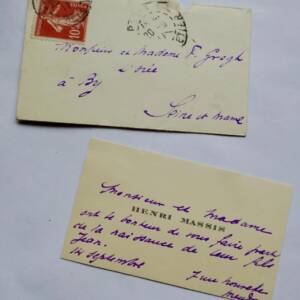 10
Monsieur et Madame F. Grogh
à By
Seine et marne
Monsieur et Madame
HENRI MASSIS
ont le bonheur de vous faire part
de la naissance de leur fils
Jean.
14 septembre